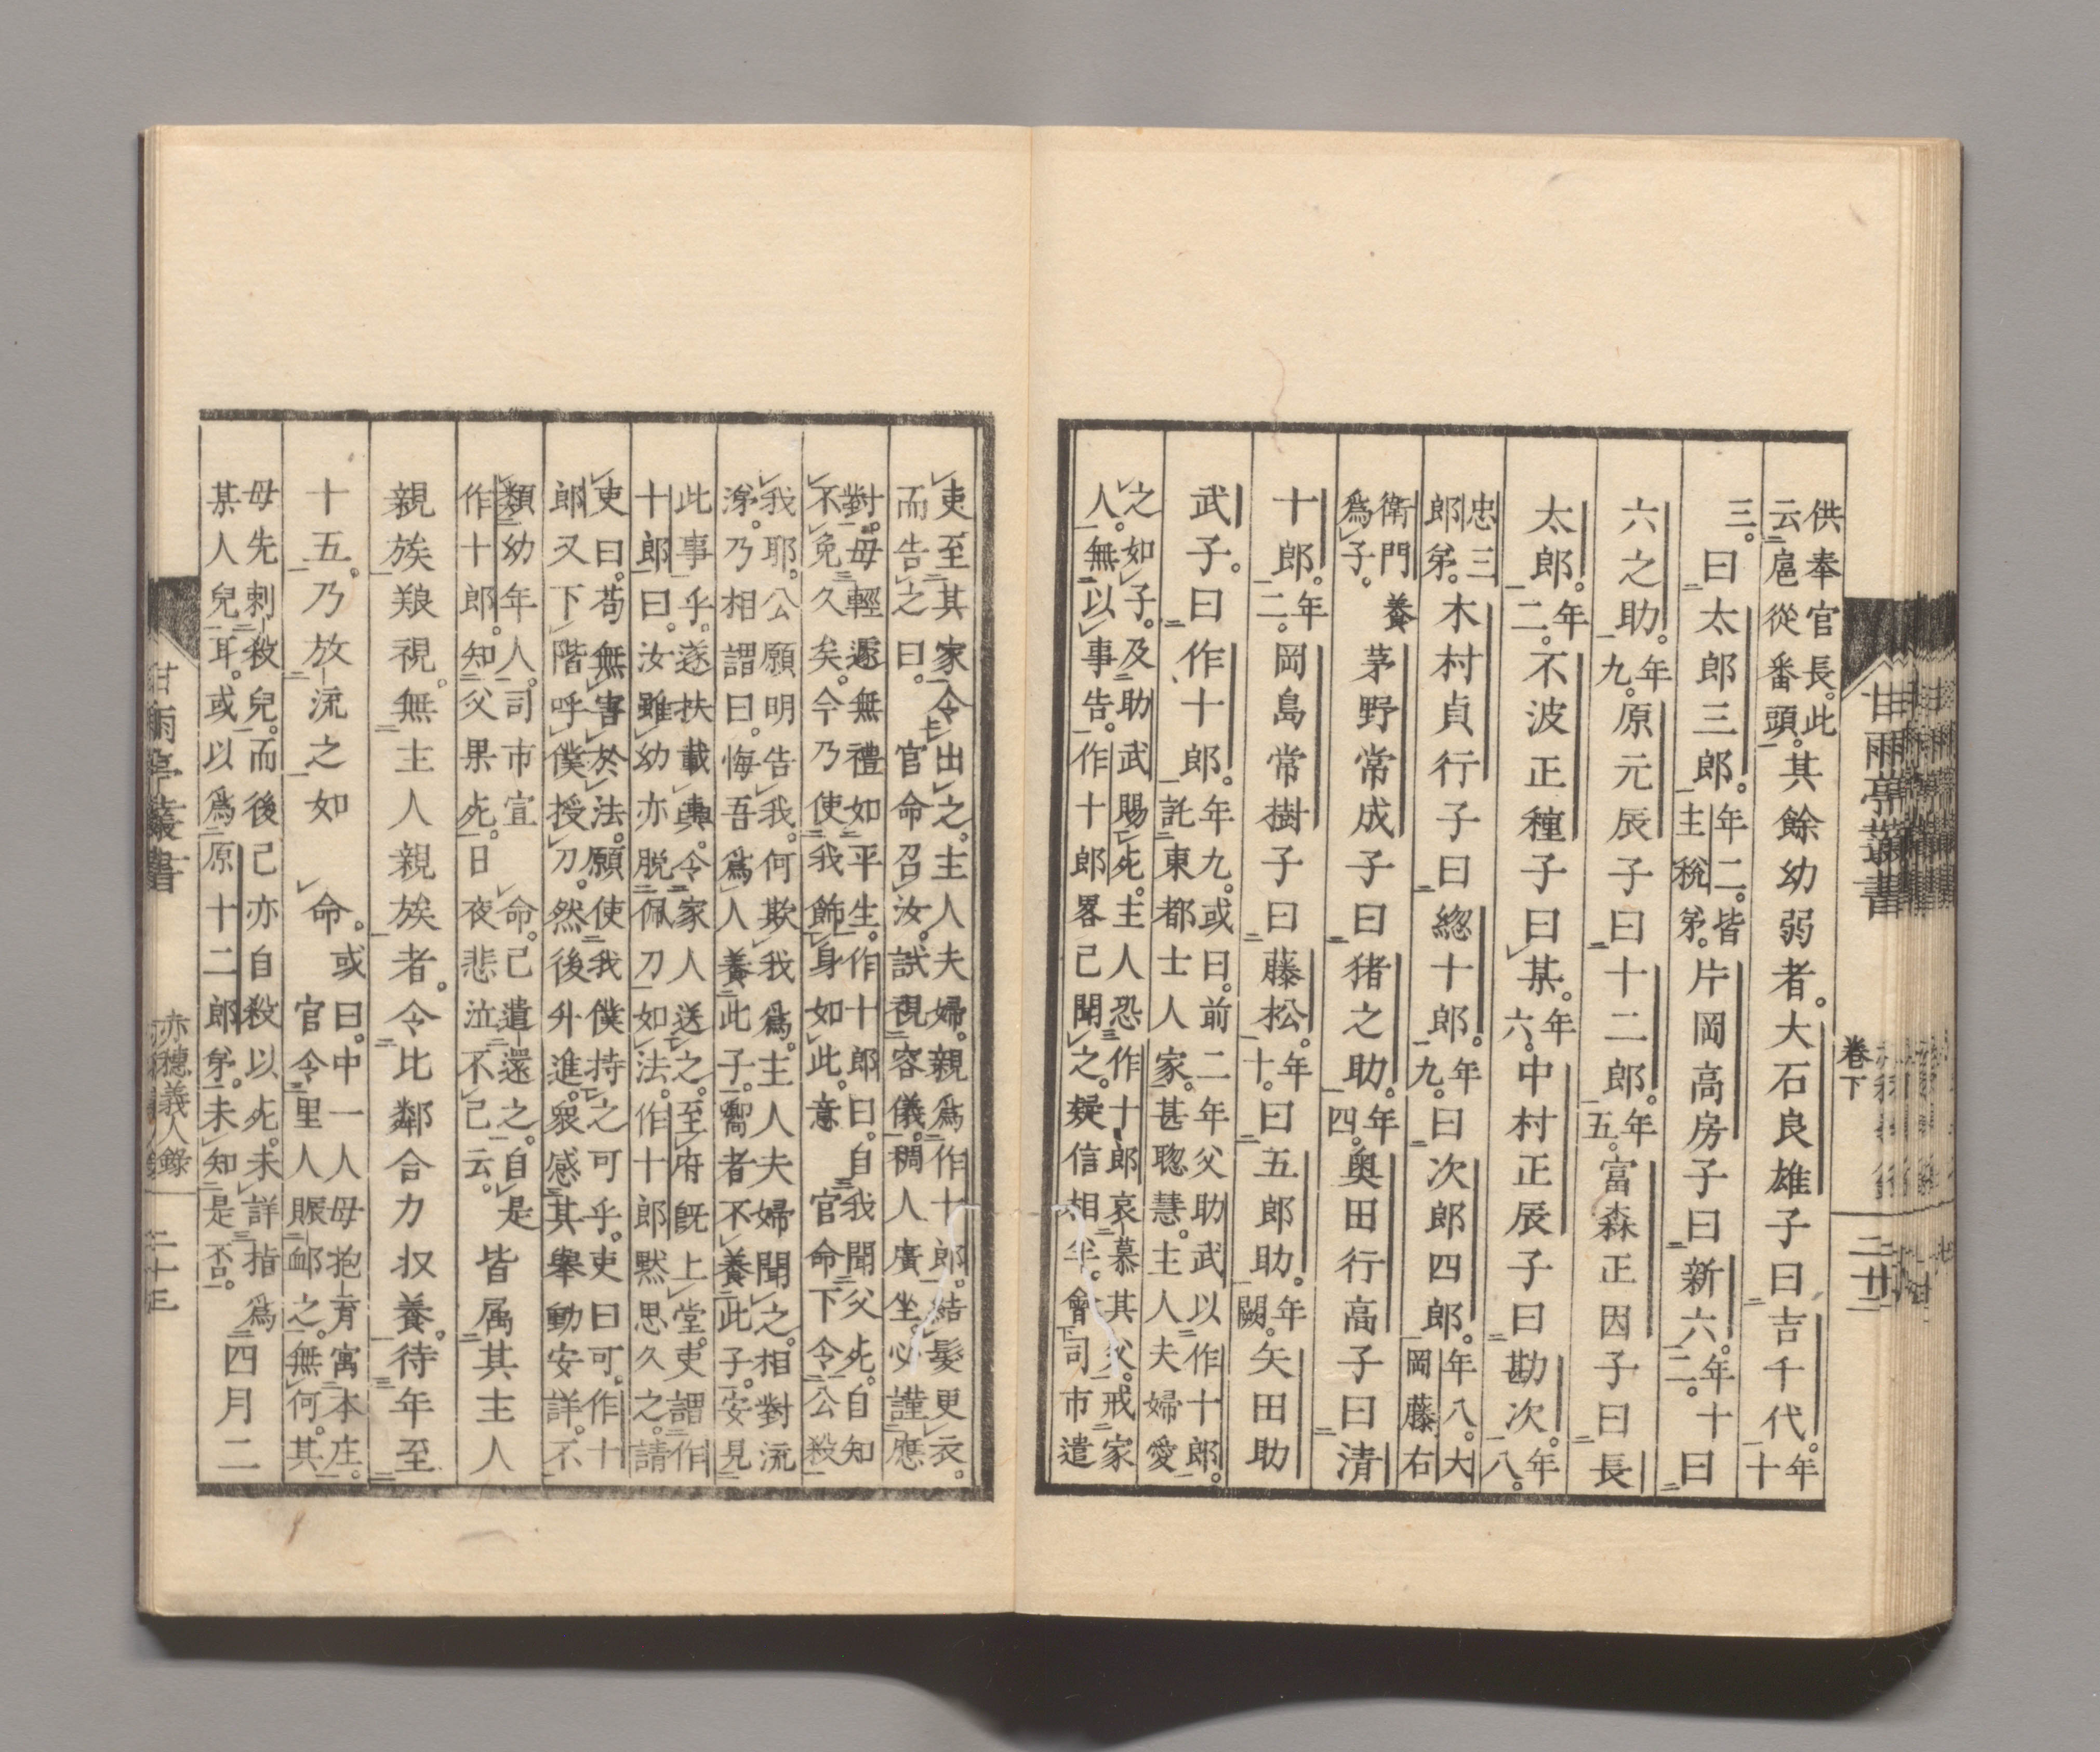 甘雨亭叢書 卷下 二十二
供奉官長。此
云扈從番頭。
其餘幼弱者。大石良雄子曰吉千代。年十
三。曰太郎三郎。年二。皆主税弟。片岡高房子曰新六。年十二。曰
六之助。年九。原元辰子曰十二郎。年五。富森正因子曰長
太郎。年二。不波正種子曰某。年六。中村正辰子曰勘次。年八。
忠三郎弟。木村貞行子曰總十郎。年九。曰次郎四郎。年八。大岡藤右
衛門養爲子。茅野常成子曰猪之助。年四。奥田行高子曰清
十郎。年二。岡島常樹子曰藤松。年十。曰五郎助。年闕。矢田助
武子。曰作十郎。年九。或曰。前二年父助武以作十郎。
託東都士人家。甚聰慧。主人夫婦愛
之如子。及助武賜死。主人恐作十郎哀慕其父。戒家
人。無以事告。作十郎畧已聞之。疑信相半。會司市遣
吏至其家令出之。主人夫婦。親爲作十郎。結髪更衣。
而告之曰。官命召汝。試視容儀。稠人廣坐必謹應
對。毋輕遽無禮如平生。作十郎曰。自我聞父死。自知
不免久矣。今乃使我飾身如此。意官命下令公殺
我耶。公願明告我。何欺我爲。主人夫婦聞之。相對流
涕。乃相謂曰。悔吾爲人養此子。嚮者不養此子。安見
此事乎。遂扶載輿。令家人送之。至府既上堂。吏謂作
十郎曰。汝雖幼亦脱佩刀如法。作十郎黙思久之。請
吏曰。苟無害於法。願使我僕持之可乎。吏曰可。作十
郎又下階呼僕授刀。然後升進。衆感其擧動安詳。不
類幼年人。司市宣命。己遣還之。自是
作十郎。知父果死。日夜悲泣不已云。
皆属其主人
親族視。無主人親族者。令比鄰合力収養。待年至
十五。乃放流之如命。或曰。中一人母抱育寓本庄。
官令里人賑䘏之。無何。其
母先刺殺兒。而後己亦自殺以死。未詳指爲
某人兒耳。或以爲原十二郎弟。未知是否。
四月二
甘雨亭叢書 赤穗義人錄 二十三